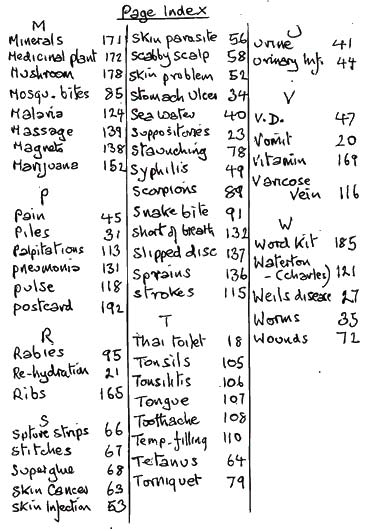 Page Index
M
Minerals 171
Medicinal plant 172
Mushroom 178
Mosqu. bites 85
Malaria 124
Massage 139
Magnets 138
Marijuana 152
P
Pain 45
Piles 31
Palpitations 113
pneumonia 131
pulse 118
postcard 192
R
Rabies 95
Re-hydration 21
Ribs 165
S
Suture strips 66
Stitches 67
Superglue 68
Skin Cancer 63
Skin Infection 53
Skin parasite 56
Scabby scalp 58
Skin problem 52
Stomach Ulcer 34
Sea water 40
Suppositories 23
Staunching 78
Syphilis 49
Scorpions 89
Snake bite 91
Short of breath 132
Slipped disc 137
Sprains 136
Strokes 115
T
Thai toilet 18
Tonsils 105
Tonsilitis 106
Tongue 107
Toothache 108
Temp-filling 110
Tetanus 64
Torniquet 79
U
Urine 41
Urinary Inf. 44
V
V.D. 47
Vomit 20
Vitamin 169
Varicose
Vein 116
W
Word Kit 185
Waterton
(Charles) 121
Weils disease 27
Worms 35
Wounds 72